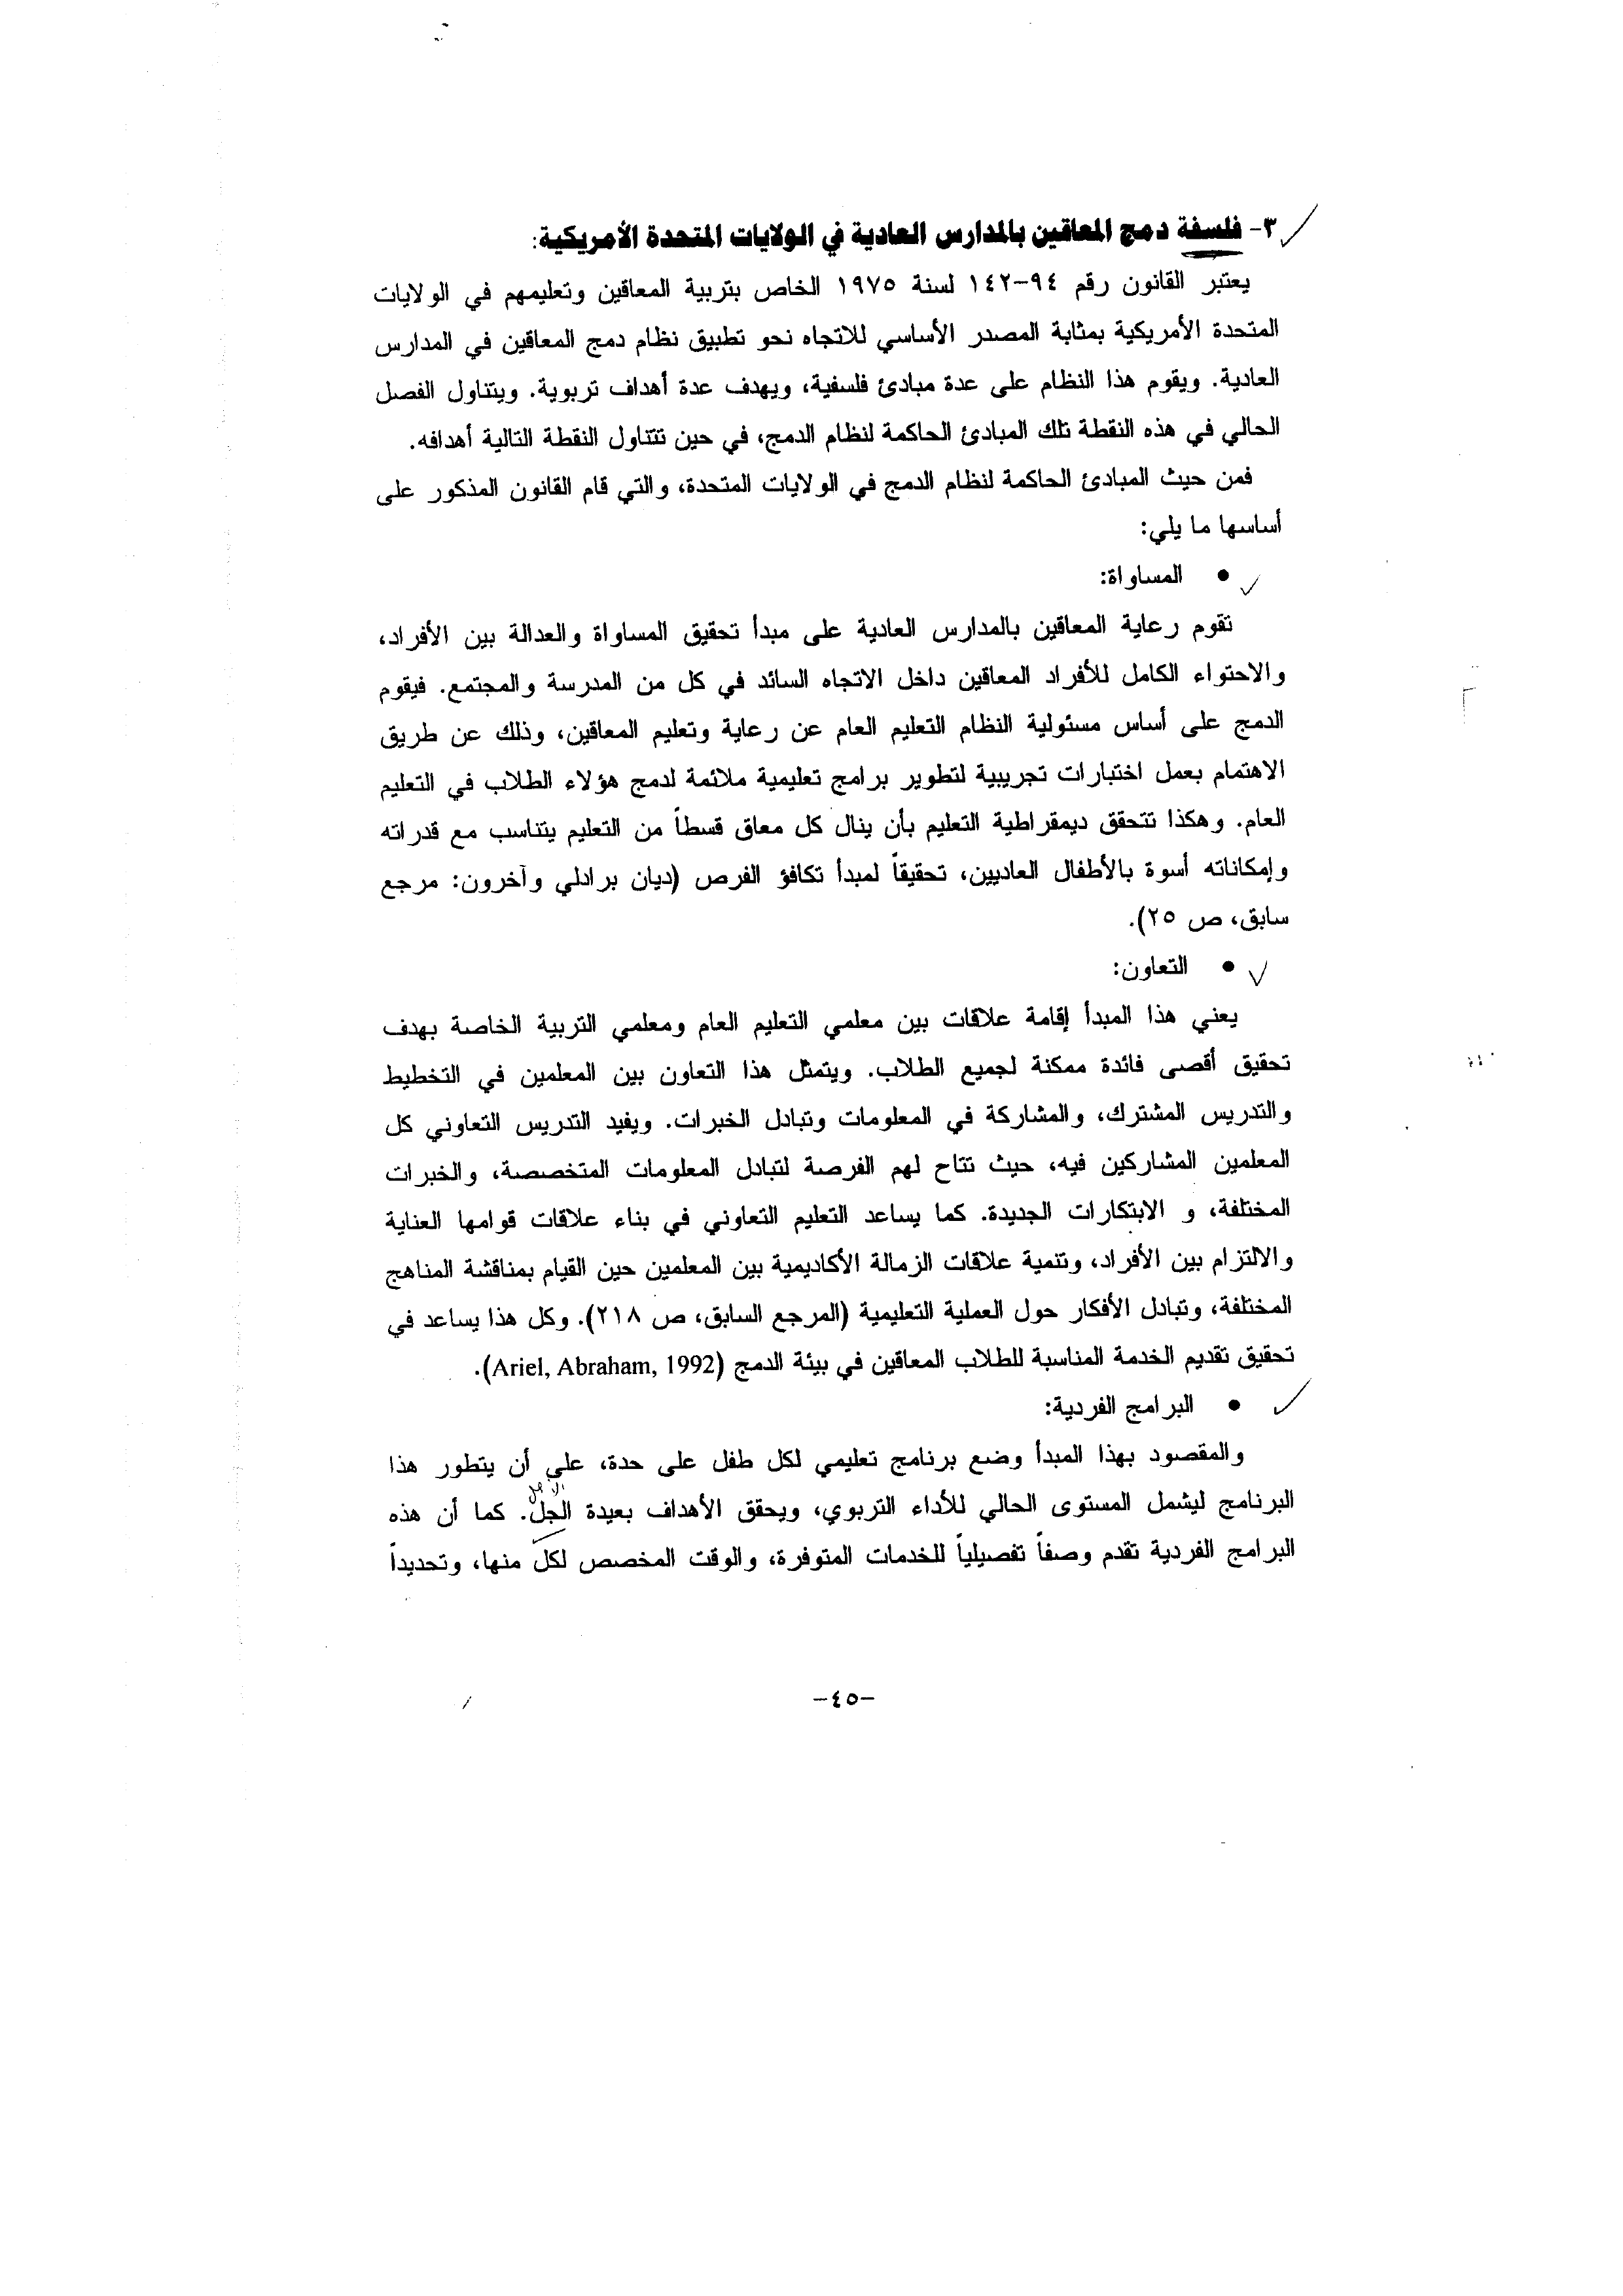 ٣- فلسفة دمج المعاقين بالمدارس العادية في الولايات المتحدة الأمريكية:
يعتبر القانون رقم ٩٤-١٤٢ لسنة ١٩٧٥ الخاص بتربية المعاقين وتعليمهم في الولايات
المتحدة الأمريكية بمثابة المصدر الأساسي للاتجاه نحو تطبيق نظام دمج المعاقين في المدارس
العادية. ويقوم هذا النظام على عدة مبادئ فلسفية، ويهدف عدة أهداف تربوية. ويتناول الفصل
الحالي في هذه النقطة تلك المبادئ الحاكمة لنظام الدمج، في حين تتناول النقطة التالية أهدافه.
فمن حيث المبادئ الحاكمة لنظام الدمج في الولايات المتحدة، والتي قام القانون المذكور على
أساسها ما يلي:
• المساواة:
تقوم رعاية المعاقين بالمدارس العادية على مبدأ تحقيق المساواة والعدالة بين الأفراد،
والاحتواء الكامل للأفراد المعاقين داخل الاتجاه السائد في كل من المدرسة والمجتمع. فيقوم
الدمج على أساس مسئولية النظام التعليم العام عن رعاية وتعليم المعاقين، وذلك عن طريق
الاهتمام بعمل اختبارات تجريبية لتطوير برامج تعليمية ملائمة لدمج هؤلاء الطلاب في التعليم
العام. وهكذا تتحقق ديمقراطية التعليم بأن ينال كل معاق قسطاً من التعليم يتناسب مع قدراته
وإمكاناته أسوة بالأطفال العاديين، تحقيقاً لمبدأ تكافؤ الفرص (ديان برادلي وآخرون: مرجع
سابق، ص ٢٥).
• التعاون:
يعني هذا المبدأ إقامة علاقات بين معلمي التعليم العام ومعلمي التربية الخاصة بهدف
تحقيق أقصى فائدة ممكنة لجميع الطلاب. ويتمثل هذا التعاون بين المعلمين في التخطيط
والتدريس المشترك، والمشاركة في المعلومات وتبادل الخبرات. ويفيد التدريس التعاوني كل
المعلمين المشاركين فيه، حيث تتاح لهم الفرصة لتبادل المعلومات المتخصصة، والخبرات
المختلفة، و الابتكارات الجديدة. كما يساعد التعليم التعاوني في بناء علاقات قوامها العناية
والالتزام بين الأفراد، وتنمية علاقات الزمالة الأكاديمية بين المعلمين حين القيام بمناقشة المناهج
المختلفة، وتبادل الأفكار حول العملية التعليمية (المرجع السابق، ص ٢١٨). وكل هذا يساعد في
تحقيق تقديم الخدمة المناسبة للطلاب المعاقين في بيئة الدمج (Ariel, Abraham, 1992).
• البرامج الفردية:
والمقصود بهذا المبدأ وضع برنامج تعليمي لكل طفل على حدة، على أن يتطور هذا
الأجل
البرنامج ليشمل المستوى الحالي للأداء التربوي، ويحقق الأهداف بعيدة الجل. كما أن هذه
البرامج الفردية تقدم وصفاً تفصيلياً للخدمات المتوفرة، والوقت المخصص لكل منها، وتحديداً
-٤٥-